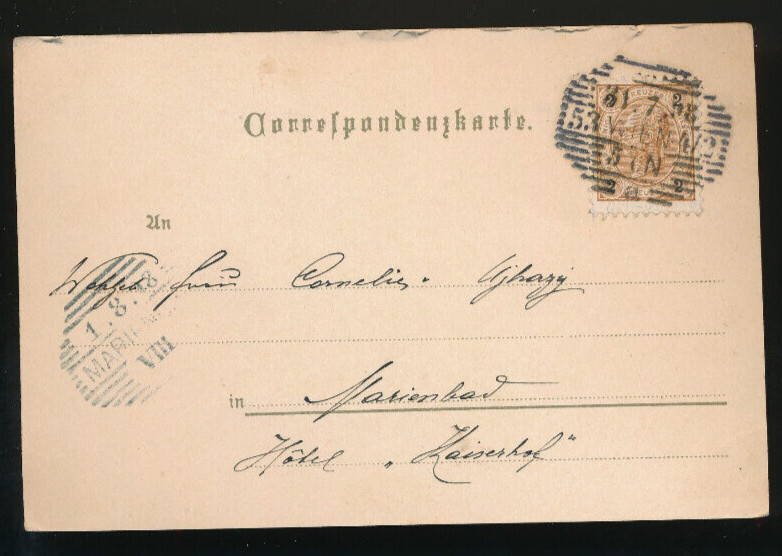 Correspondenzkarte.
2 2
31.7.98
WIEN
2 2
An
Frau Cornelie Ujhazy
1.8.98
MARIEN
VIII
in Marienbad
Hôtel „Kaiserhof“